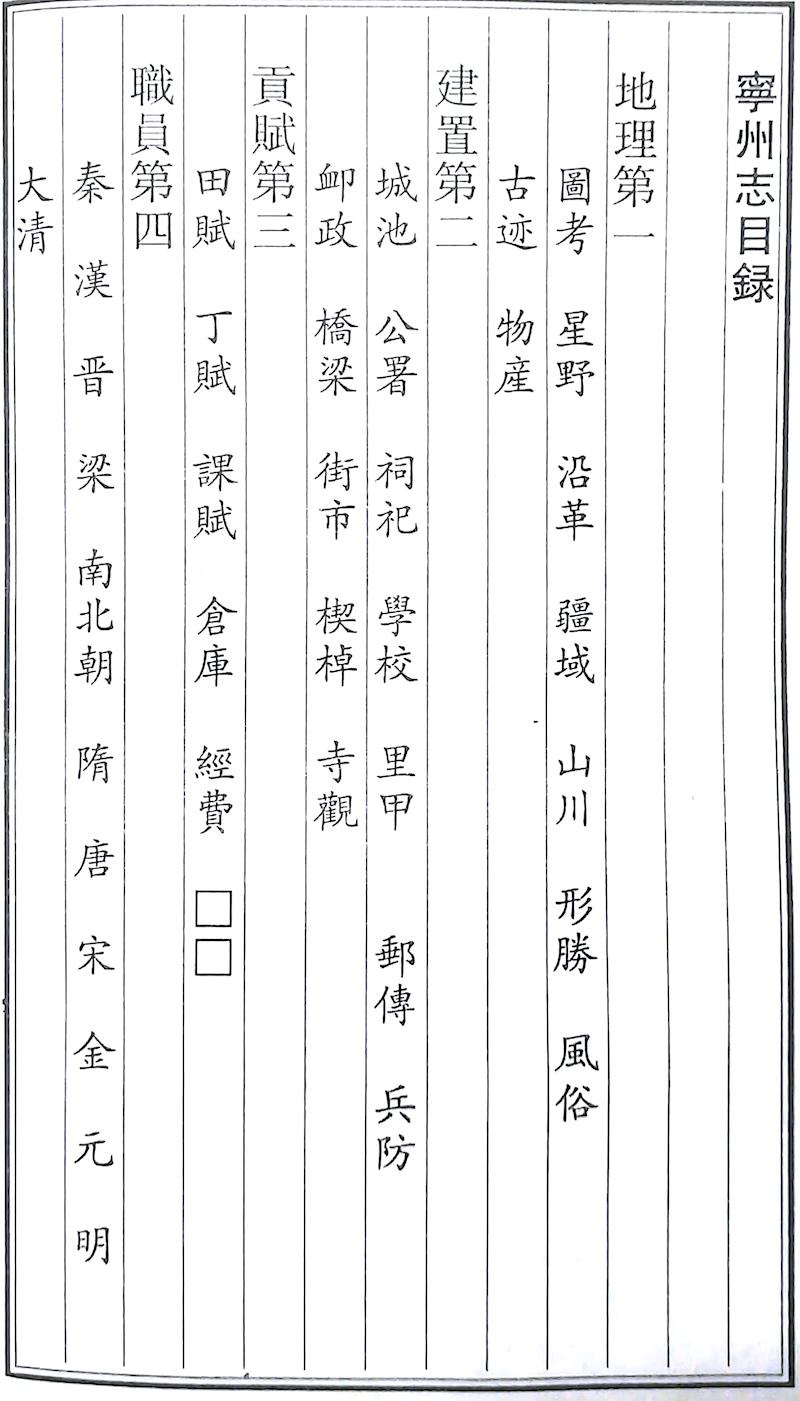 寧州志目録
地理第一
圖考 星野 沿革 疆域 山川 形勝 風俗
古迹 物産
建置第二
城池 公署 祠祀 學校 里甲 郵傳 兵防
衈政 橋梁 街市 楔棹 寺觀
貢賦第三
田賦 丁賦 課賦 倉庫 經費 □□
職員第四
秦 漢 晋 梁 南北朝 隋 唐 宋 金 元 明
大清